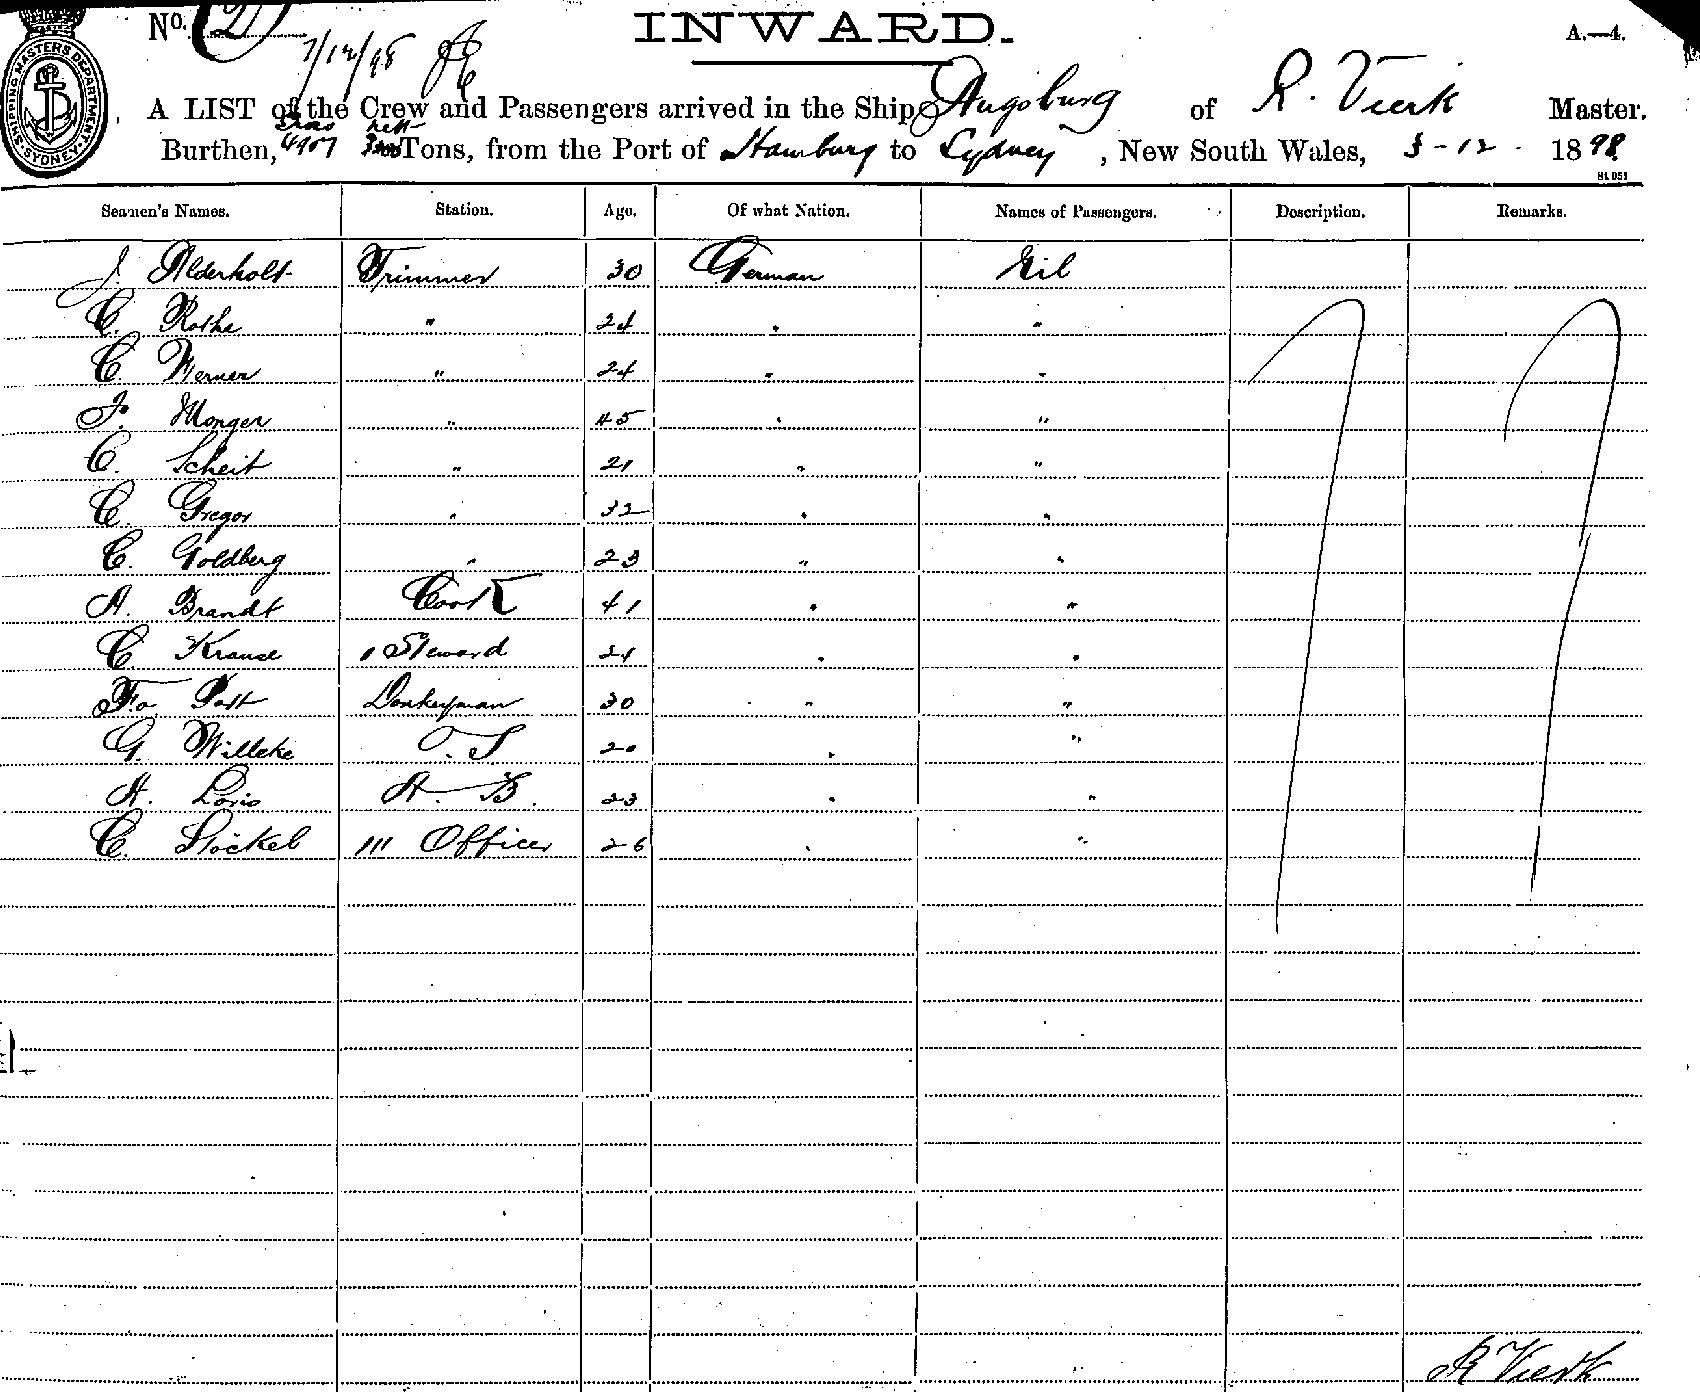 No. (2) INWARD. A.—4.
7/12/98
SHIPPING MASTERS DEPARTMENT SYDNEY
A LIST of the Crew and Passengers arrived in the Ship Augsburg of R. Vierk Master.
Burthen, 4907 Tons, from the Port of Hamburg to Sydney, New South Wales, 3-12-1898
Seamen's Names. Station. Age. Of what Nation. Names of Passengers. Description. Remarks.
J. Alderholt Trimmer 30 German Nil
C. Rothe " 24 " "
C. Werner " 24 " "
F. Monger " 45 " "
C. Scheit " 21 " "
C. Gregor " 32 " "
C. Goldberg " 23 " "
A. Brandt Cook 41 " "
C. Krause 1 Steward 24 " "
Post Donkeyman 30 " "
G. Willeke 20 " "
A. Loris A. B. 23 " "
C. Stöckel III Officer 26 " "
R Vierk